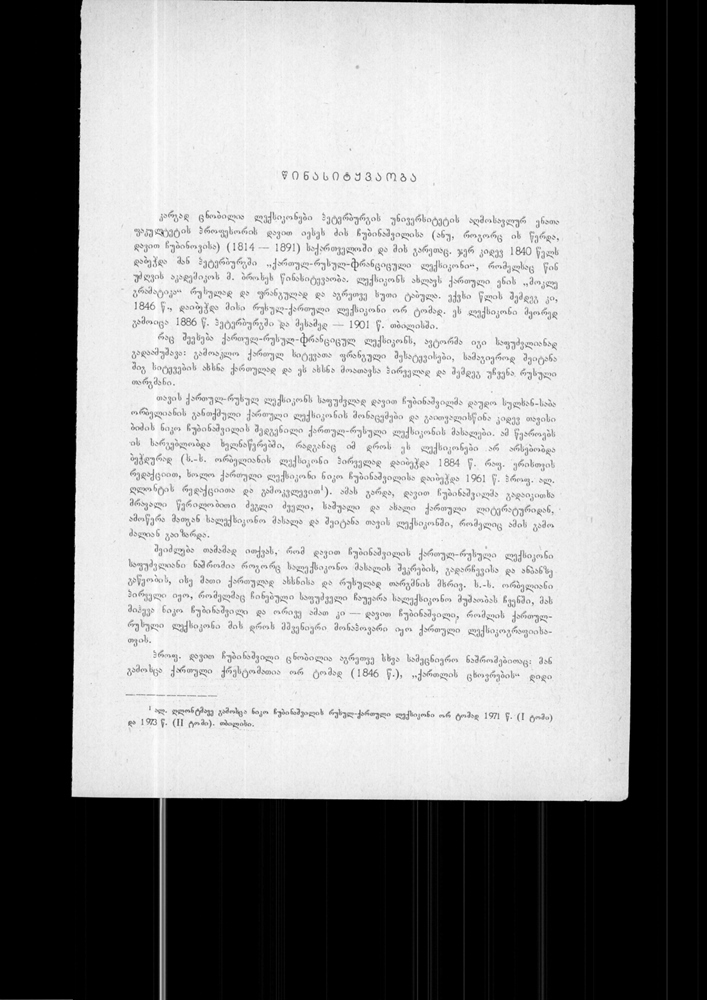 წინასიტყვაობა
კარგად ცნობილია ლექსიკონები პეტერბურგის უნივერსიტეტის აღმოსავლურ ენათა
ფაკულტეტის პროფესორის დავით იესეს ძის ჩუბინაშვილისა (ანუ, როგორც ის წერდა,
დავით ჩუბინოვისა) (1814 — 1891) საქართველოში და მის გარეთაც. ჯერ კიდევ 1840 წელს
დაბეჭდა მან პეტერბურგში „ქართულ-რუსულ-ფრანციცული ლექსიკონი“, რომელსაც წინ
უძღვის აკადემიკოს მ. ბროსეს წინასიტყვაობა. ლექსიკონს ახლავს ქართული ენის „მოკლე
გრამატიკა“ რუსულად და ფრანგულად და აგრეთვე სუთი ტაბულა. ექვსი წლის შემდეგ კი,
1846 წ., დაიბეჭდა მისი რუსულ-ქართული ლექსიკონი ორ ტომად. ეს ლექსიკონი მეორედ
გამოიცა 1886 წ. პეტერბურგში და მესამედ — 1901 წ. თბილისში.
რაც შეეხება ქართულ-რუსულ-ფრანციცულ ლექსიკონს, ავტორმა იგი საფუძვლიანად
გადაამუშავა: გამოაკლო ქართულ სიტყვათა ფრანგული შესატყვისები, სამაგიეროდ შეიტანა
შიგ სიტყვების ახსნა ქართულად და ეს ახსნა მოათავსა პირველად და შემდეგ უჩვენა რუსული
თარგმანი.
თავის ქართულ-რუსულ ლექსიკონს საფუძვლად დავით ჩუბინაშვილმა დაუდო სულხან-საბა
ორბელიანის განთქმული ქართული ლექსიკონის მონაცემები და გაითვალისწინა კიდევ თავისი
ბიძის ნიკო ჩუბინაშვილის შედგენილი ქართულ-რუსული ლექსიკონის მასალები. ამ წყაროებს
ის სარგებლობდა ხელნაწერებში, რადგანაც იმ დროს ეს ლექსიკონები არ არსებობდა
ბეჭდურად (ს.-ს. ორბელიანის ლექსიკონი პირველად დაიბეჭდა 1884 წ. რაფ. ერისთვის
რედაქციით, ხოლო ქართული ლექსიკონი ნიკო ჩუბინაშვილისა დაიბეჭდა 1961 წ. პროფ. ალ.
ღლონტის რედაქციითა და გამოკვლევით¹). ამას გარდა, დავით ჩუბინაშვილმა გადაიკითხა
მრავალი წერილობითი ძეგლი ძველი, საშუალი და ახალი ქართული ლიტერატურიდან,
ამოწერა მათგან სალექსიკონო მასალა და შეიტანა თავის ლექსიკონში, რომელიც ამის გამო
ძალიან გაიზარდა.
შეიძლება თამამად ითქვას, რომ დავით ჩუბინაშვილის ქართულ-რუსული ლექსიკონი
საფუძვლიანი ნაშრომია როგორც სალექსიკონო მასალის შეკრების, გადარჩევისა და ანბანზე
გაწყობის, ისე მათი ქართულად ახსნისა და რუსულად თარგმნის მხრივ. ს.-ს. ორბელიანი
პირველი იყო, რომელმაც ჩინებული საფუძველი ჩაუყარა სალექსიკონო მუშაობას ჩვენში, მას
მიჰყვა ნიკო ჩუბინაშვილი და ორივე ამათ კი — დავით ჩუბინაშვილი, რომლის ქართულ-
რუსული ლექსიკონი მის დროს მშვენიერი მონაპოვარი იყო ქართული ლექსიკოგრაფიისა-
თვის.
პროფ. დავით ჩუბინაშვილი ცნობილია აგრეთვე სხვა სამეცნიერო ნაშრომებითაც: მან
გამოსცა ქართული ქრესტომათია ორ ტომად (1846 წ.), „ქართლის ცხოვრების“ დიდი
¹ ალ. ღლონტმავე გამოსცა ნიკო ჩუბინაშვილის რუსულ-ქართული ლექსიკონი ორ ტომად 1971 წ. (I ტომი)
და 1973 წ. (II ტომი). თბილისი.